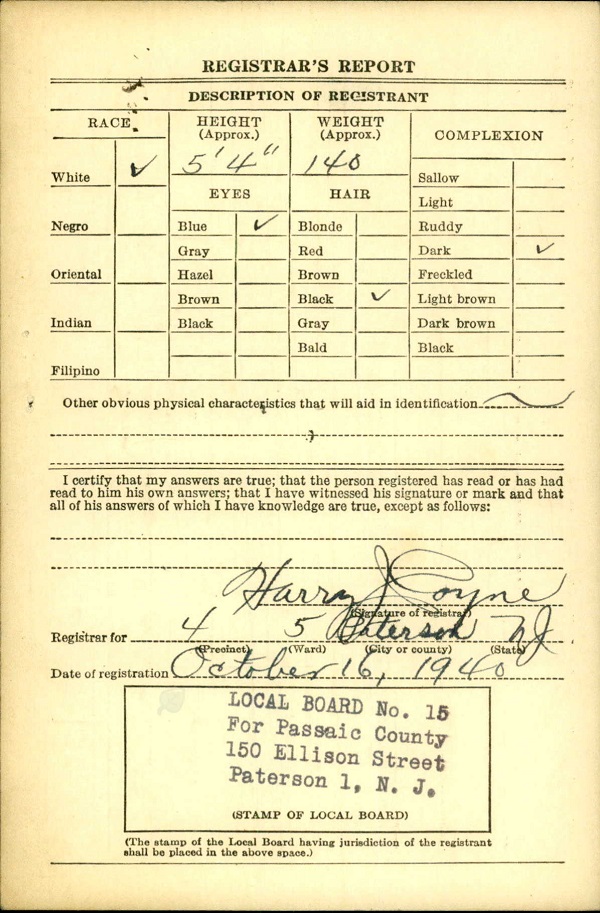 REGISTRAR'S REPORT
DESCRIPTION OF REGISTRANT
RACE
HEIGHT
(Approx.)
WEIGHT
(Approx.)
COMPLEXION
White ✓
5' 4"
140
Sallow
EYES
HAIR
Light
Negro
Blue ✓
Blonde
Ruddy
Gray
Red
Dark ✓
Oriental
Hazel
Brown
Freckled
Brown
Black ✓
Light brown
Indian
Black
Gray
Dark brown
Bald
Black
Filipino
Other obvious physical characteristics that will aid in identification
I certify that my answers are true; that the person registered has read or has had
read to him his own answers; that I have witnessed his signature or mark and that
all of his answers of which I have knowledge are true, except as follows:
Harry J Coyne
(Signature of registrar)
Registrar for 4 5 Paterson NJ
(Precinct) (Ward) (City or county) (State)
Date of registration October 16, 1940
LOCAL BOARD No. 15
For Passaic County
150 Ellison Street
Paterson 1, N. J.
(STAMP OF LOCAL BOARD)
(The stamp of the Local Board having jurisdiction of the registrant
shall be placed in the above space.)